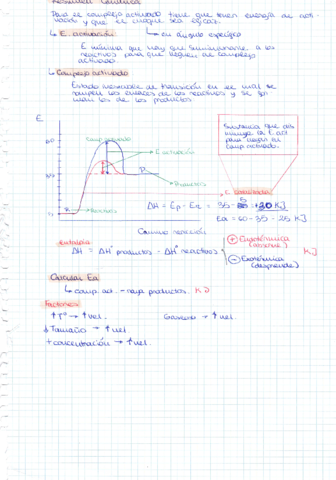 Para el complejo activado tiene que tener energía de activado y que el choque sea eficaz.
↳ E. activación
↳ en ángulo específico
E mínima que hay que suministrarle a los
reactivos para que lleguen al complejo
activado
↳ Complejo activado
Estado inestable de transición en el cual se
rompen los enlaces de los reactivos y se forman
los de los productos
E
comp. activado
60
E activación
35
P
Productos
R
Reactivos
Sustancia que disminuye
la E act
para llegar al
comp. activado.
E. catalizada
ΔH = Ep - Er = 35 - 5 = +30 KJ
Ea = 60 - 35 = 25 KJ
Camino reacción
Entalpía
ΔH = ΔH° productos - ΔH° reactivos
+ Endotérmica
(absorbe)
KJ
- Exotérmica
(desprende)
Calcular Ea
↳ comp. act. - raya productos. KJ
Factores:
↑ Tª → ↑ vel.
Gaseoso → ↑ vel.
↓ Tamaño → ↑ vel
+ concentración → ↑ vel.